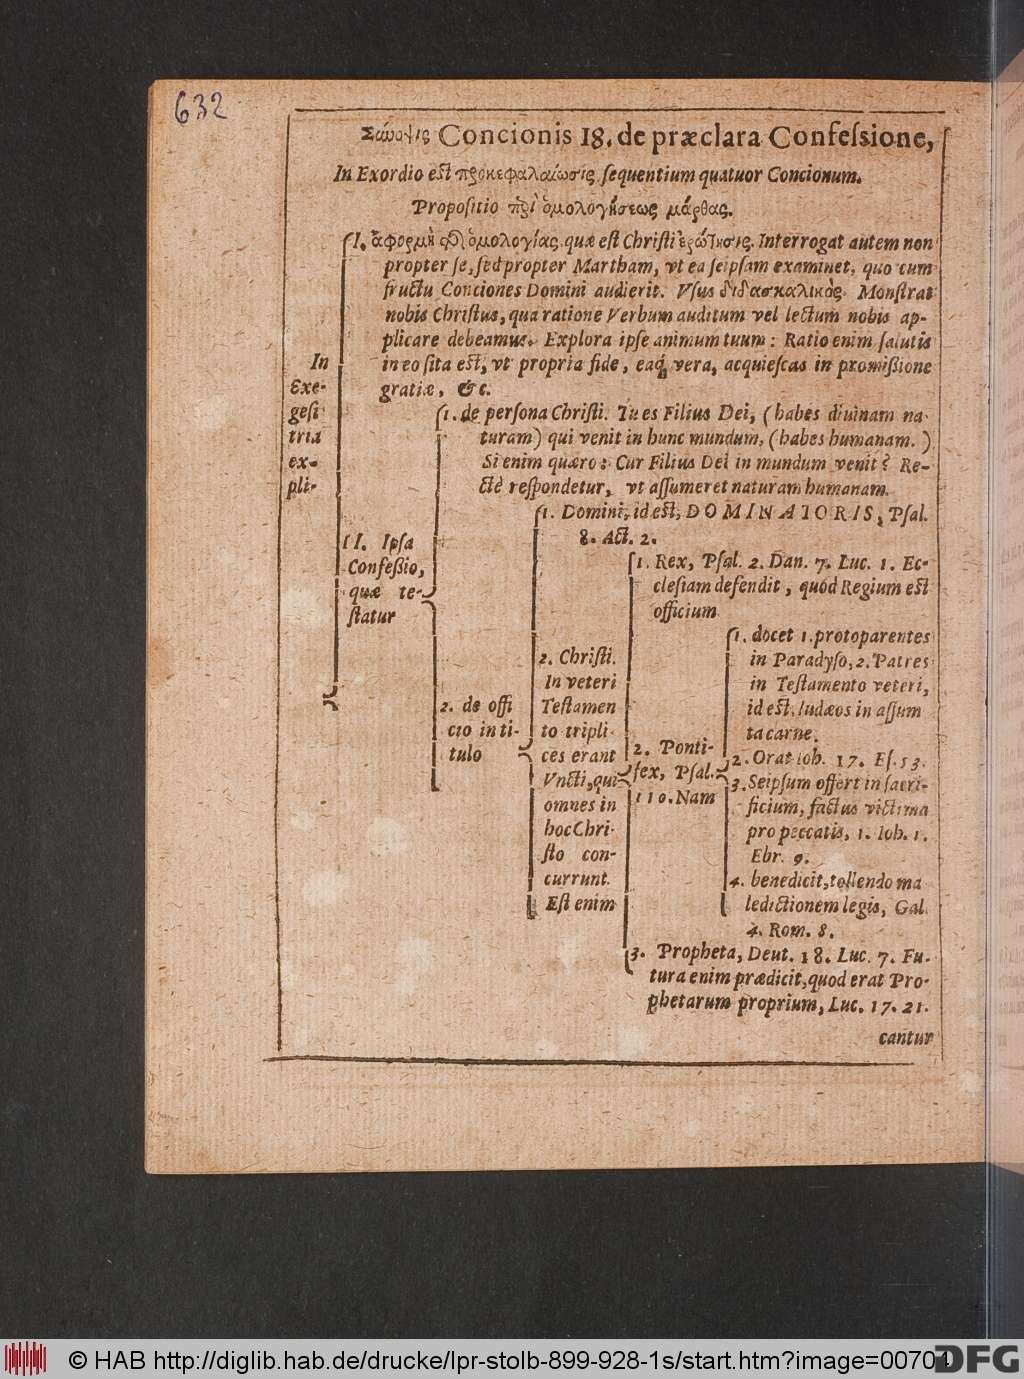 632
Σύνοψις Concionis 18. de præclara Confeſsione,
In Exordio eſt προκεφαλαίωσις ſequentium quatuor Concionum.
Propoſitio περὶ ὁμολογήσεως μάρθας.
I. ἀφορμὴ τῆς ὁμολογίας, quæ eſt Chriſti ἐρώτησις. Interrogat autem non
propter ſe, ſed propter Martham, vt ea ſeipſam examinet, quo cum
fructu Conciones Domini audierit. Vſus διδασκαλικὸς. Monſtrat
nobis Chriſtus, qua ratione Verbum auditum vel lectum nobis ap-
plicare debeamus. Explora ipſe animum tuum: Ratio enim ſalutis
in eo ſita eſt, vt propria fide, eaq́; vera, acquieſcas in promiſsione
gratiæ, &c.
In
Exe-
geſi
tria
ex-
pli-
1. de perſona Chriſti. Tu es Filius Dei, (habes diuinam na-
turam) qui venit in hunc mundum, (habes humanam.)
Si enim quæro: Cur Filius Dei in mundum venit? Re-
ctè reſpondetur, vt aſſumeret naturam humanam.
II. Ipſa
Confeſsio,
quæ te-
ſtatur
1. Domini, id eſt, DOMINATORIS, Pſal.
8. Act. 2.
1. Rex, Pſal. 2. Dan. 7. Luc. 1. Ec-
cleſiam defendit, quód Regium eſt
officium
2. de offi
cio in ti-
tulo
2. Chriſti.
In veteri
Teſtamen
to tripli-
ces erant
Vncti, qui
omnes in
hoc Chri-
ſto con-
currunt.
Eſt enim
2. Ponti-
fex, Pſal.
110. Nam
1. docet 1. protoparentes
in Paradyſo, 2. Patres
in Teſtamento veteri,
id eſt, Iudæos in aſſum
ta carne.
2. Orat Ioh. 17. Eſ. 53.
3. Seipſum offert in ſacri-
ficium, factus victima
pro peccatis, 1. Ioh. 1.
Ebr. 9.
4. benedicit, tollendo ma
ledictionem legis, Gal.
4. Rom. 8.
3. Propheta, Deut. 18. Luc. 7. Fu-
tura enim prædicit, quod erat Pro-
phetarum proprium, Luc. 17. 21.
cantur
© HAB http://diglib.hab.de/drucke/lpr-stolb-899-928-1s/start.htm?image=00704
DFG